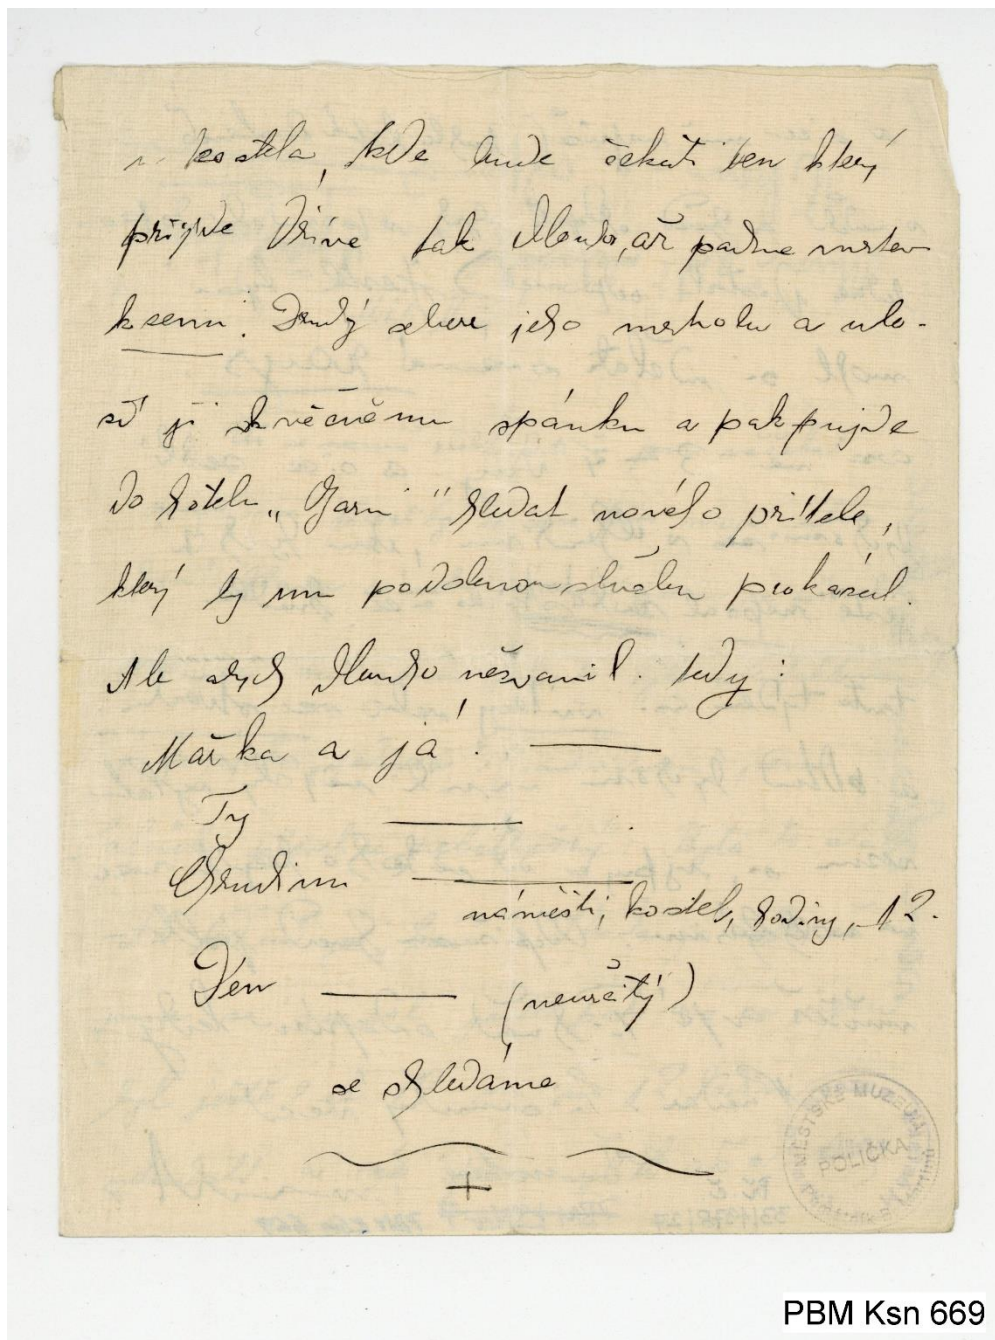 u kostela, kde bude čekati ten který
přijde dříve tak dlouho, až padne mrtev
k zemi. Druhý sebere jeho mrtvolu a ulo-
ží ji k věčnému spánku a pak pujde
do hotelu „Garni" hledat nového přítele,
který by mu podobnou službu prokázal.
Ale abych dlouho nežvanil. tedy:
Mařka a já!
Ty
Chrudim
náměstí, kostel, hodiny, 12.
Den (neurčitý)
se shledáme
MĚSTSKÉ MUZEUM
POLIČKA
PBM Ksn 669